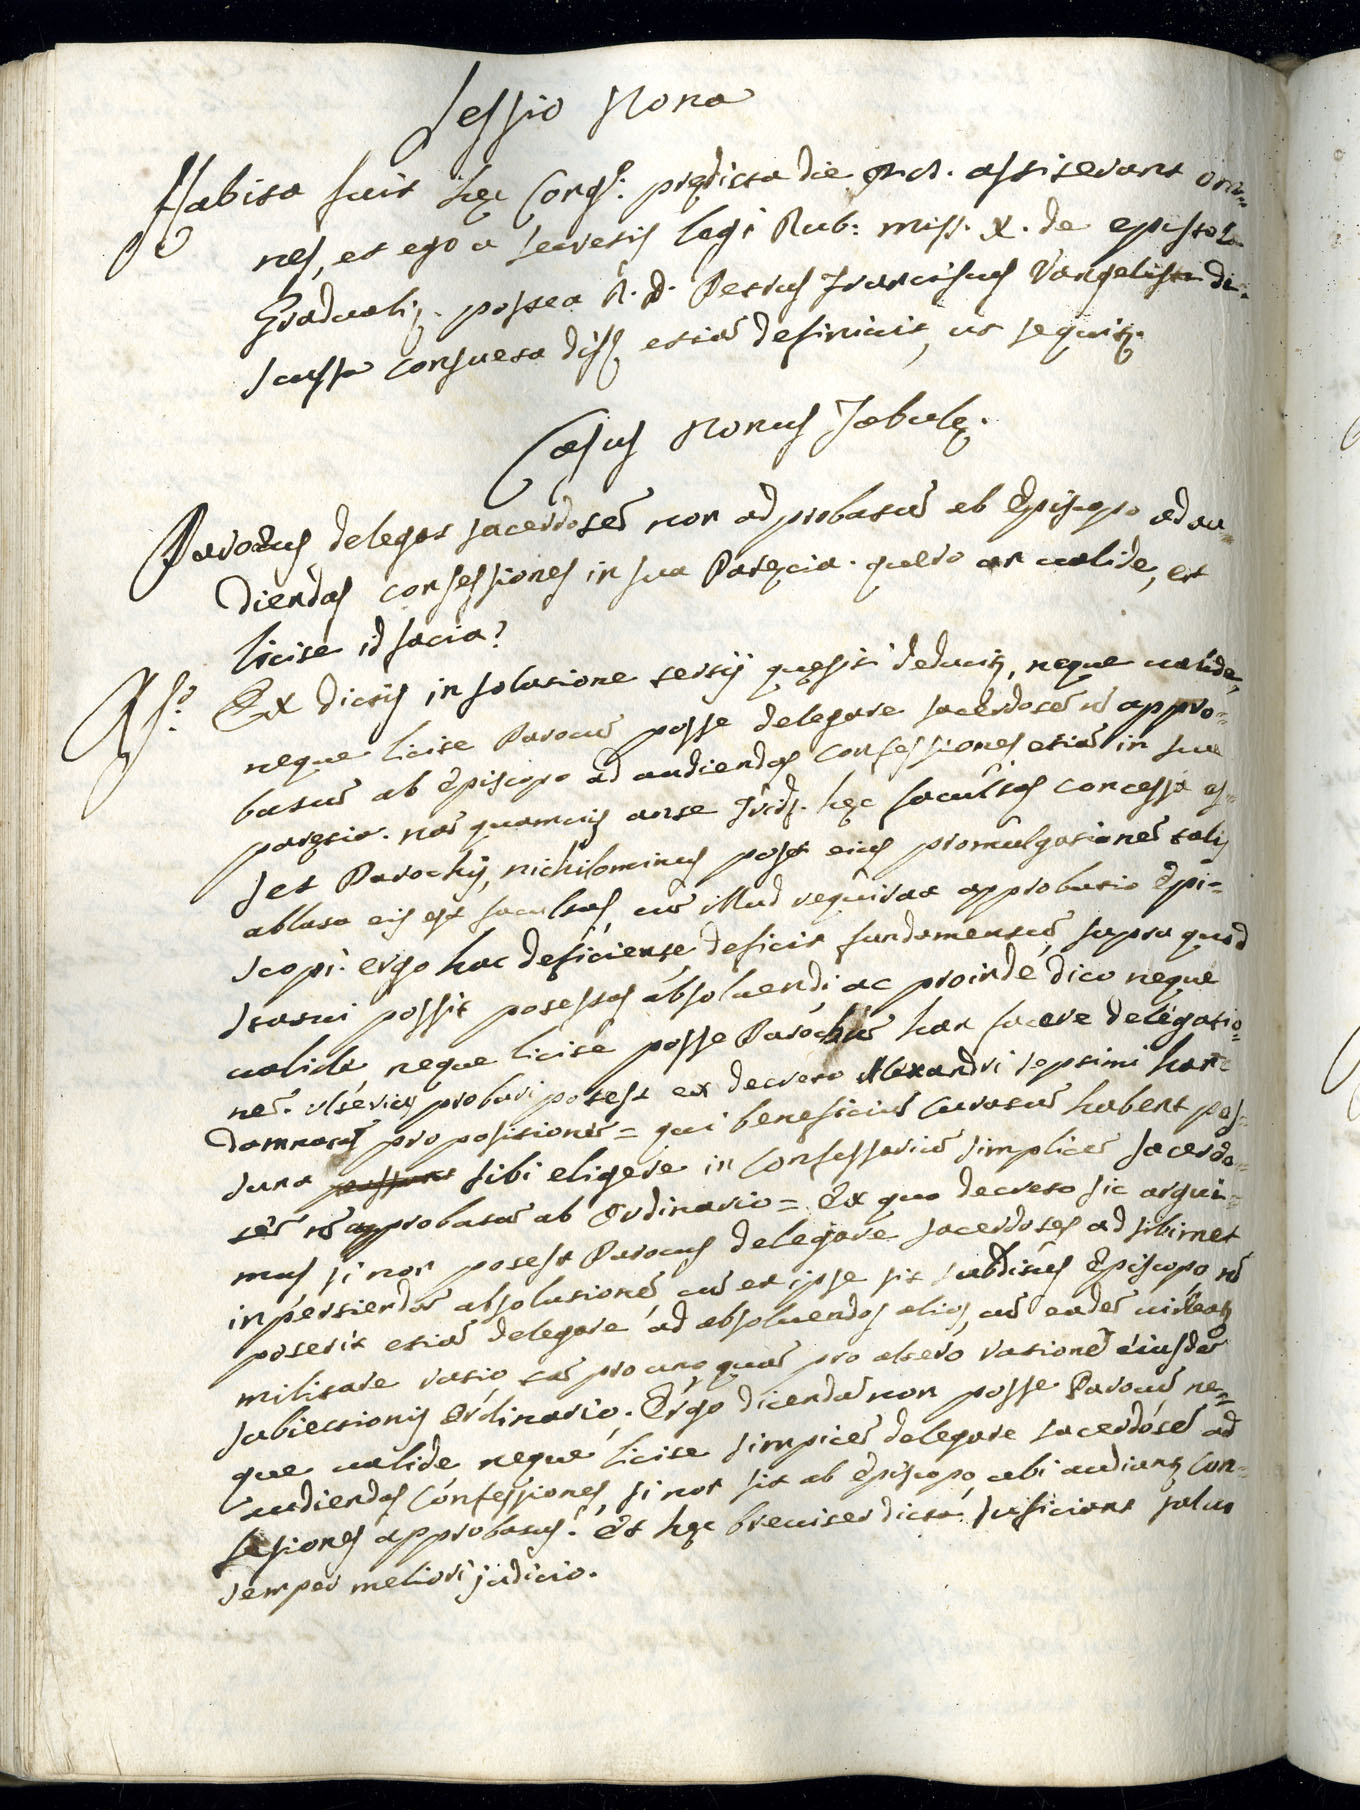 Sessio Nona
Habita fuit hęc Congr. prędicta die astiterunt om=
nes, et ego a secretis legi Rub: miss. X. de epistola
Graduali. postea R. D. Petrus Franciscus Vangelista di-
scussa consueta diff. etiā definiuit, ut sequitr.
Casus Nonus Tabulę.
Parocus delegat sacerdotē non adprobatū ab Episcopo ad au
diendas confessiones in sua Paręcia. quero an ualide, et
licite id facia?
Rso. Ex dictis in solutione tertij quęsiti deducitr, neque ualide,
neque licite Parocū posse delegare sacerdotē nō appro=
batū ab Episcopo ad audiendas confessiones etiā in sua
paręcia. nā quamuis ante Trid. hęc facultas concessa es=
set Parochis, nichilominus post eius promulgationē talis
ablata eis est facultas, cū illud requirat approbatio Epi=
scopi. ergo hac deficiente deficit fundamentū, supra quod
statui possit potestas absoluendi ac proinde dico neque
ualide, neque licite posse Parochū han facere delegatio=
nē. ulterius probari potest ex decreto Alexandri septimi han=
damnatā propositionē = qui beneficiū curatū habent pos=
sunt sibi eligere in Confessariū simplicē sacerdo=
tē nō approbatū ab Ordinario = Ex quo decreto sic argui=
mus si non potest Parocus delegare sacerdotes ad sibimet
inpertiendā absolutionē cū et ipse sit subditus Episcopo nō
poterit etiā delegare ad absoluendos alios, cū eadē uideatr
militare ratio tā pro uno, quā pro altero rationē eiusdē
subiectionis Ordinario. Ergo dicendū non posse Parocū ne=
que ualide neque licite simpicē delegare sacerdotē ad
audiendas Confessiones, si non sit ab Episcopo, ubi audiantr Con=
fesiones approbatus. Et hęc breuiter dicta suficiant saluo
semper meliori judicio.